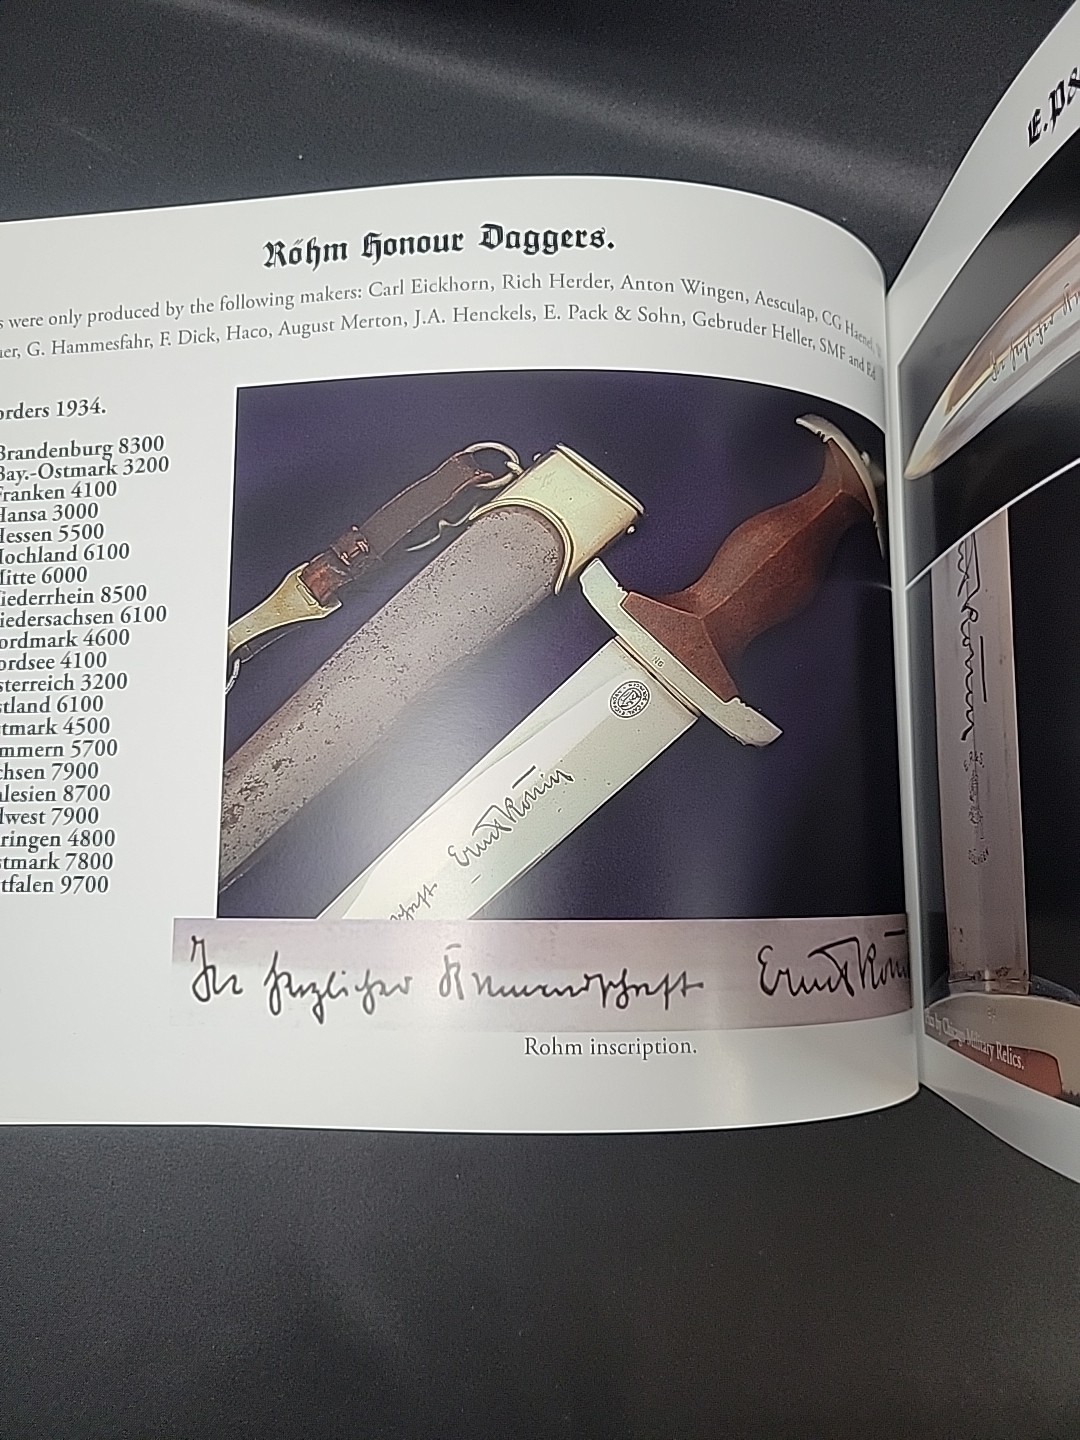 Röhm Honour Daggers.
were only produced by the following makers: Carl Eickhorn, Rich Herder, Anton Wingen, Aesculap, CG Haenel,
G. Hammesfahr, F. Dick, Haco, August Merton, J.A. Henckels, E. Pack & Sohn, Gebruder Heller, SMF and Ed
orders 1934.
Brandenburg 8300
Bay.-Ostmark 3200
Franken 4100
Hansa 3000
Hessen 5500
Hochland 6100
Mitte 6000
iederrhein 8500
iedersachsen 6100
ordmark 4600
ordsee 4100
sterreich 3200
stland 6100
tmark 4500
mmern 5700
chsen 7900
lesien 8700
dwest 7900
ringen 4800
stmark 7800
tfalen 9700
Ernst Röhm
In herzlicher Freundschaft Ernst Röhm
Rohm inscription.
E.P&
by Chicago Military Relics.